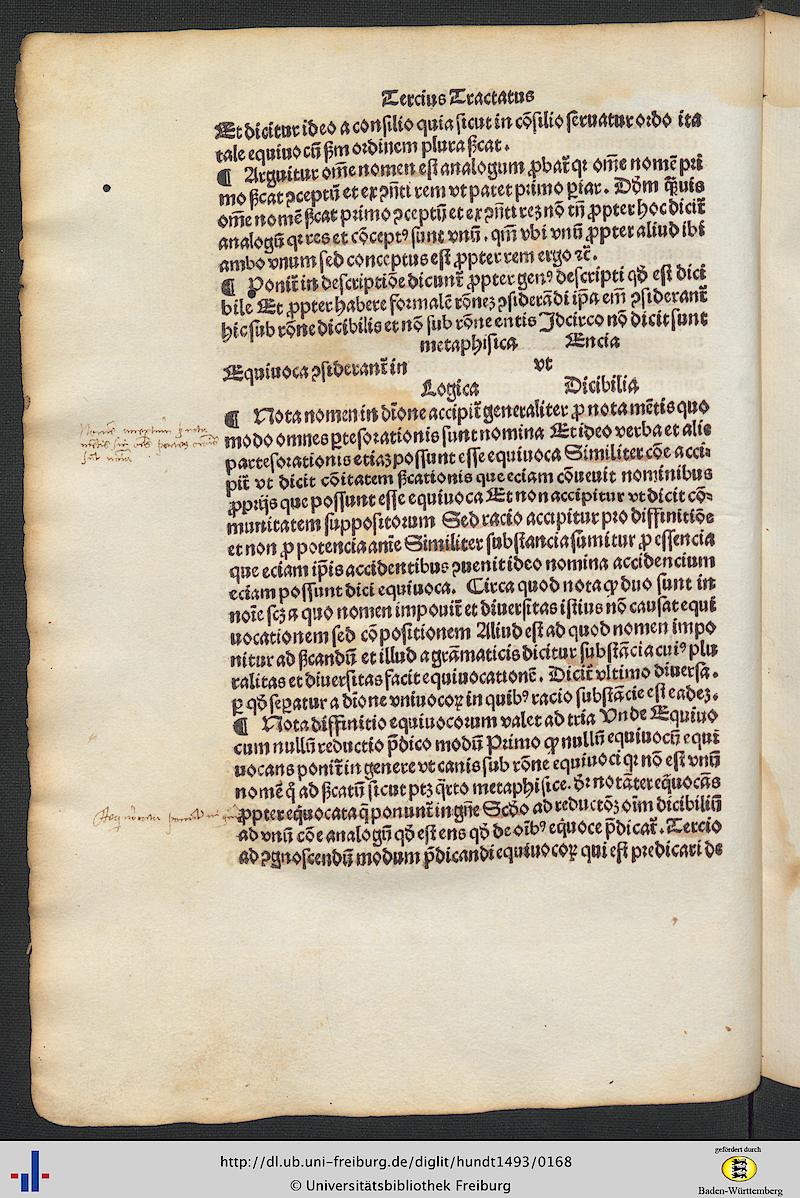 Tercius Tractatus
Et dicitur ideo a consilio quia sicut in cōsilio seruatur ordo ita
tale equiuocū ẜm ordinem plura ẜcat.
¶ Arguitur om̄e nomen est analogum ꝓbat᷑ qꝛ om̄e nomē pri
mo ẜcat ꝯceptū et ex ꝯn̄ti rem vt patet primo ꝑiar. Dd̄m qͣuis
om̄e nomē ẜcat primo ꝯceptū et ex ꝯn̄ti reꝫ nō tn̄ ꝓpter hoc dicit᷑
analogū qꝛ res et cōceptꝰ sunt vnū. qm̄ vbi vnū ꝓpter aliud ibi
ambo vnum sed conceptus est ꝓpter rem ergo ꝛc̄.
¶ Ponit᷑ in descriptiōe dicunt᷑ ꝓpter genꝰ descripti qd̄ est dici
bile Et ꝓpter habere formalē rōneꝫ ꝯsiderādi ip̄a em̄ ꝯsiderant᷑
hic sub rōne dicibilis et nō sub rōne entis Idcirco nō dicit sunt
metaphisica Encia
Equiuoca ꝯsiderant᷑ in vt
Logica Dicibilia
¶ Nota nomen in dīone accipit᷑ generaliter ꝓ nota mētis quo
modo omnes ꝑtes orationis sunt nomina Et ideo verba et alie
partes orationis etiaꝫ possunt esse equiuoca Similiter cōe acci-
pit᷑ vt dicit cōitatem ẜcationis que eciam cōuenit nominibus
ꝓprijs que possunt esse equiuoca Et non accipitur vt dicit cō-
munitatem suppositorum Sed racio accipitur pro diffinitiōe
et non ꝓ potencia anīe Similiter substancia sumitur ꝓ essencia
que eciam ip̄is accidentibus ꝯuenit ideo nomina accidencium
eciam possunt dici equiuoca. Circa quod nota ꝙ duo sunt in
noīe scꝫ a quo nomen imponit᷑ et diuersitas istius nō causat equi
uocationem sed cōpositionem Aliud est ad quod nomen impo
nitur ad ẜcandū et illud a grāmaticis dicitur substācia cuiꝰ plu
ralitas et diuersitas facit equiuocationē. Dicit᷑ vltimo diuersa.
ꝑ qd̄ seꝑatur a dīone vniuocoꝝ in quibꝰ racio substācie est eadeꝫ.
¶ Nota diffinitio equiuocorum valet ad tria Vnde Equiuo
cum nullū reductio p̄dico modū Primo ꝙ nullū equiuocū equi
uocans ponit᷑ in genere vt canis sub rōne equiuoci qꝛ nō est vnū
nomē q̄ ad ẜcatū sicut ptꝫ qͣrto metaphisice. dr̄ notāter eq̄uocās
ꝓpter eq̄uocata q̄ ponunt᷑ in gn̄e Scdo ad reductōꝫ oīm dicibiliū
ad vnū cōe analogū qd̄ est ens qd̄ de oībꝰ equoce p̄dicat᷑. Tercio
ad ꝯgnoscendū modum p̄dicandi equiuocoꝝ qui est predicari de
http://dl.ub.uni-freiburg.de/diglit/hundt1493/0168
© Universitätsbibliothek Freiburg
gefördert durch
Baden-Württemberg